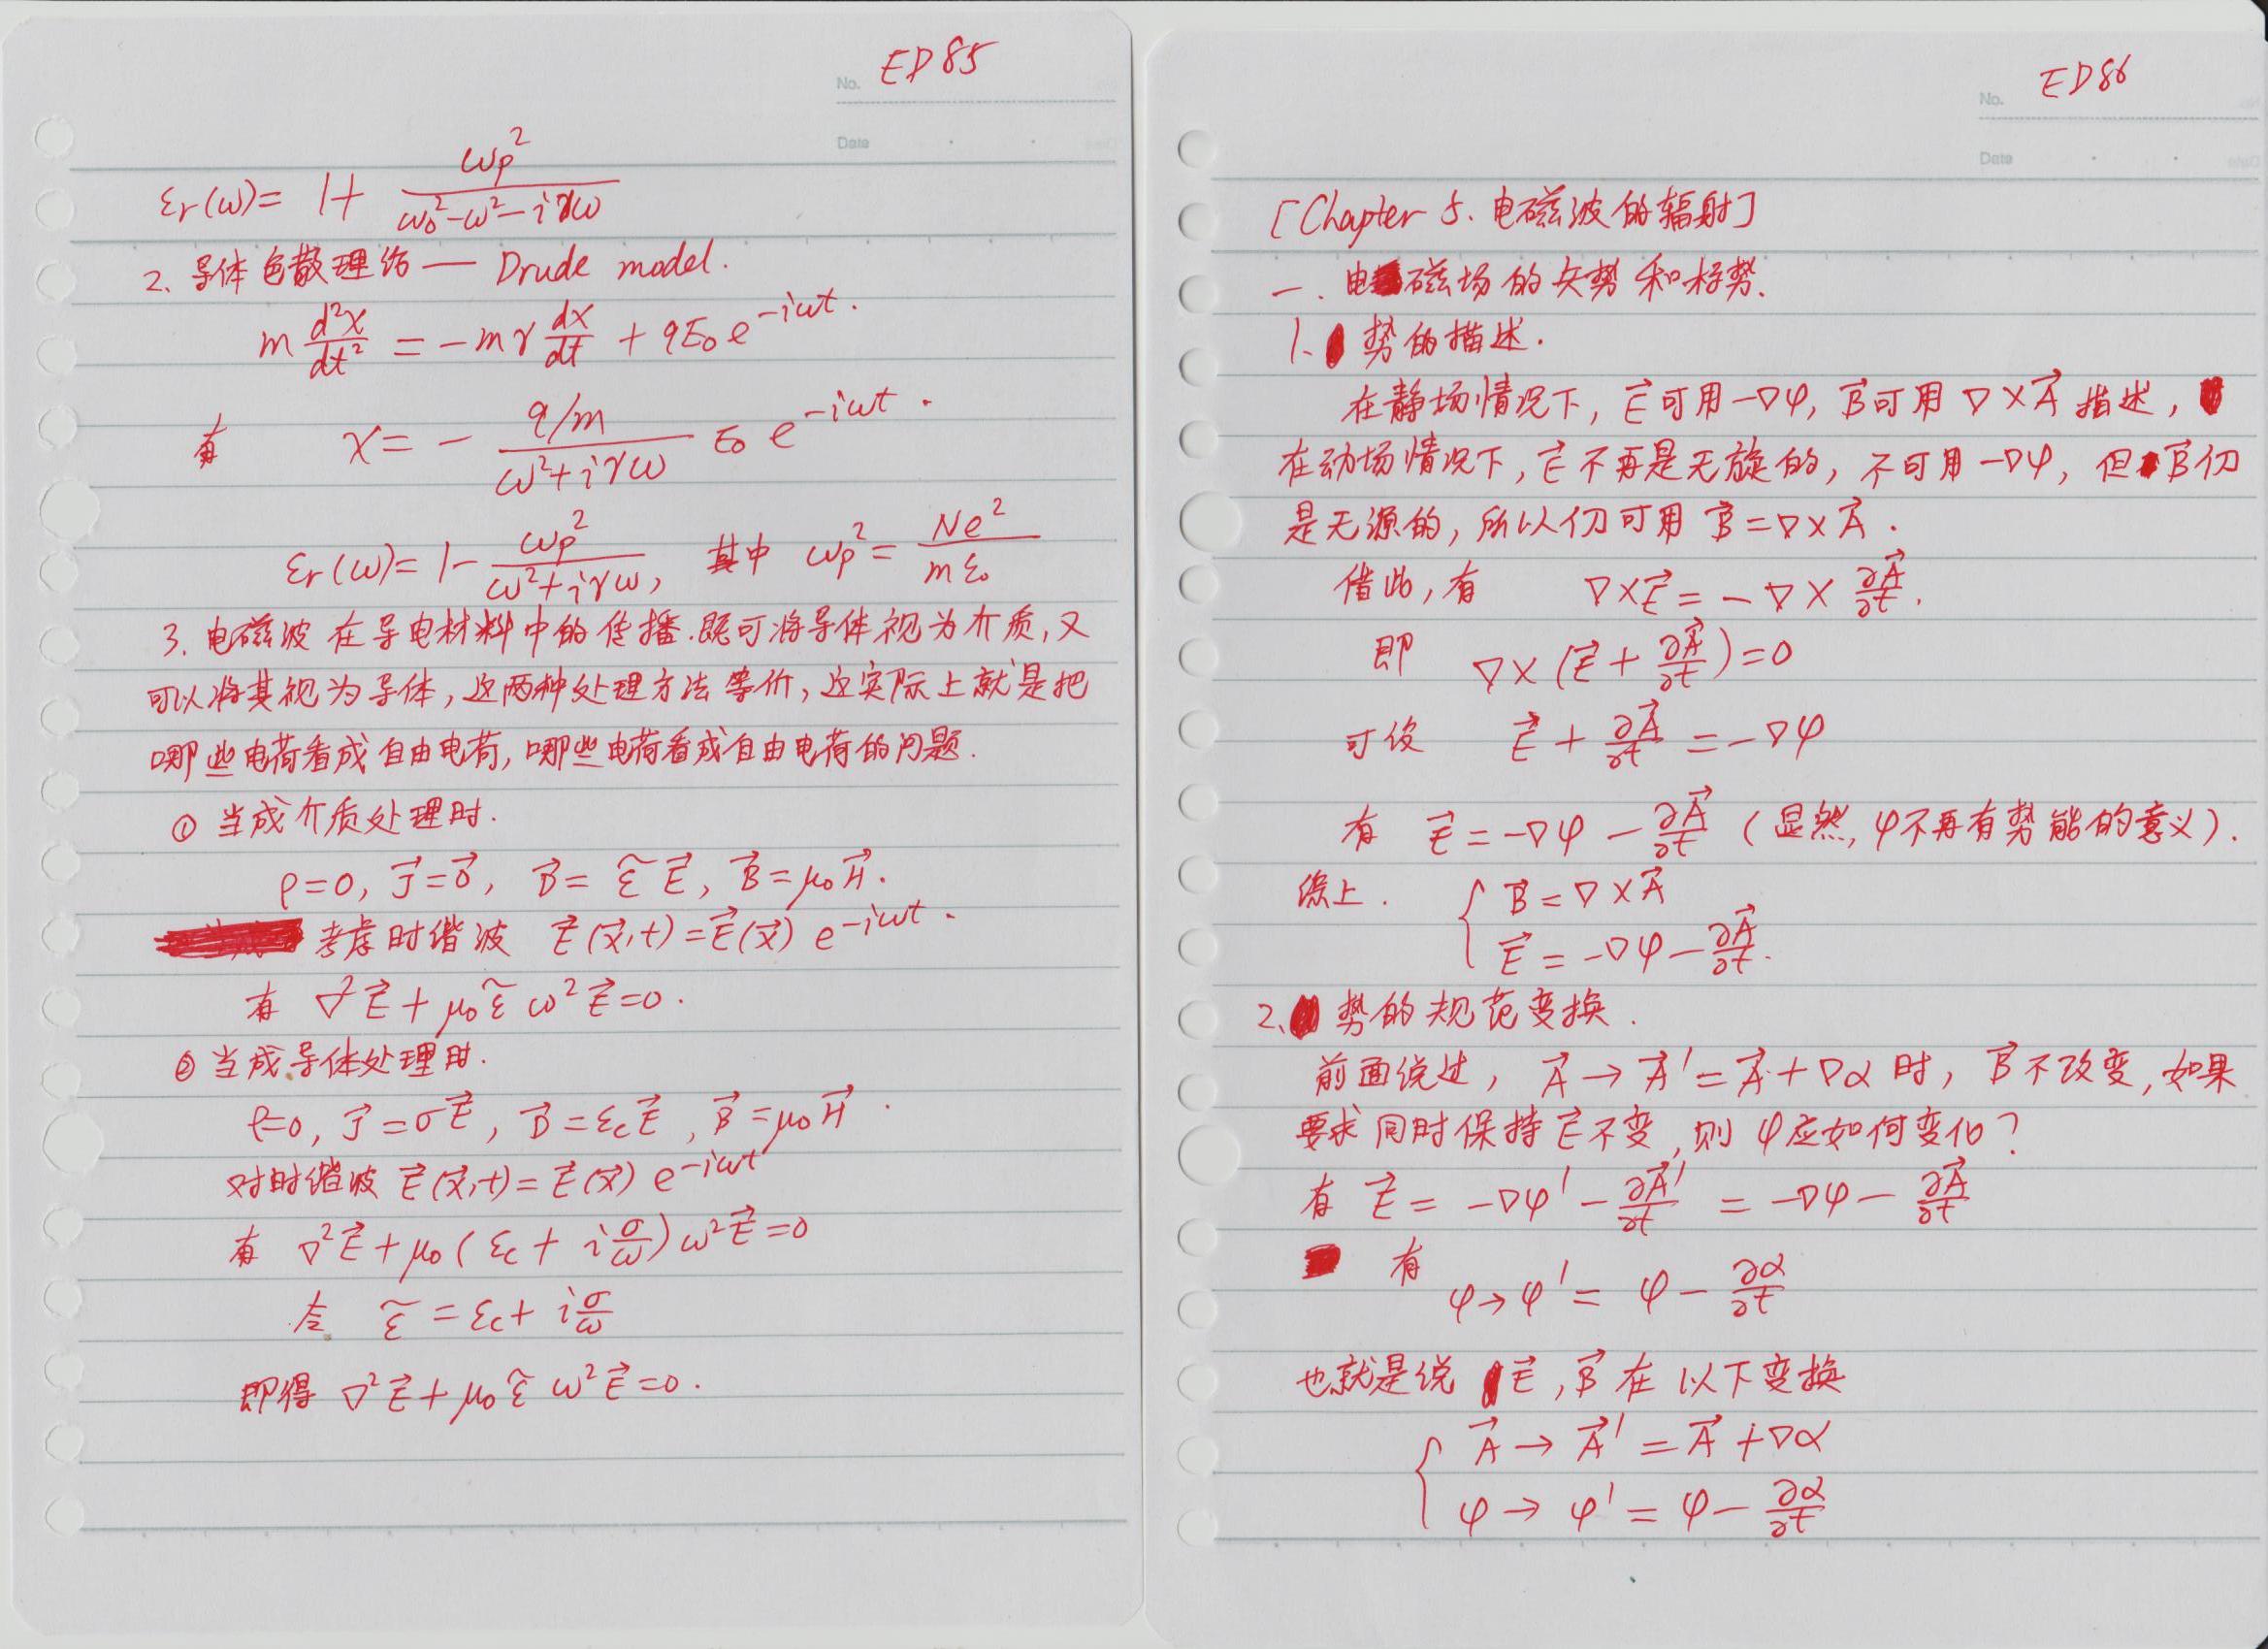 ED85
No.
Date
εr(ω)= 1+ ωp²/(ω0²-ω²-iγω)
2、导体色散理论 — Drude model.
m d²x/dt² = -mγ dx/dt + qE0 e^{-iωt}.
有 x = - (q/m)/(ω²+iγω) E0 e^{-iωt}.
εr(ω)= 1- ωp²/(ω²+iγω), 其中 ωp² = Ne²/(mε0)
3. 电磁波在导电材料中的传播.既可将导体视为介质,又
可以将其视为导体,这两种处理方法等价,这实际上就是把
哪些电荷看成自由电荷,哪些电荷看成自由电荷的问题.
① 当成介质处理时.
ρ=0, J⃗=0⃗, D⃗= ε̃ E⃗, B⃗=μ0H⃗.
考虑时谐波 E⃗(x⃗,t)=E⃗(x⃗) e^{-iωt}.
有 ∇²E⃗+μ0 ε̃ ω²E⃗=0.
② 当成导体处理时.
ρ=0, J⃗=σE⃗, D⃗=εcE⃗, B⃗=μ0H⃗.
对时谐波 E⃗(x⃗,t)=E⃗(x⃗) e^{-iωt}
有 ∇²E⃗+μ0(εc+ i σ/ω)ω²E⃗=0
令 ε̃ = εc+ i σ/ω
即得 ∇²E⃗+μ0 ε̃ ω²E⃗=0.
ED86
No.
Date
[Chapter 5. 电磁波的辐射]
一. 电磁场的矢势和标势.
1、势的描述.
在静场情况下, E⃗可用-∇φ, B⃗可用∇×A⃗描述,
在动场情况下, E⃗不再是无旋的, 不可用-∇φ, 但B⃗仍
是无源的, 所以仍可用 B⃗=∇×A⃗.
借此,有 ∇×E⃗= -∇× ∂A⃗/∂t.
即 ∇×(E⃗+ ∂A⃗/∂t)=0
可设 E⃗+ ∂A⃗/∂t = -∇φ
有 E⃗= -∇φ - ∂A⃗/∂t (显然, φ不再有势能的意义).
综上. { B⃗=∇×A⃗
E⃗= -∇φ- ∂A⃗/∂t.
2、势的规范变换.
前面说过, A⃗→A⃗'=A⃗+∇α时, B⃗不改变,如果
要求同时保持E⃗不变,则φ应如何变化?
有 E⃗= -∇φ'- ∂A⃗'/∂t = -∇φ- ∂A⃗/∂t
有 φ→φ'= φ- ∂α/∂t
也就是说 E⃗, B⃗在以下变换
{ A⃗→A⃗'=A⃗+∇α
φ→φ'=φ- ∂α/∂t